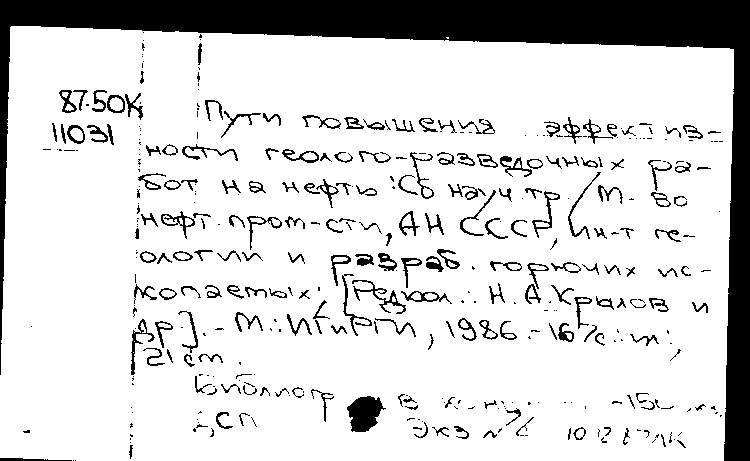 87-50К
11031
Пути повышения эффектив-
ности геолого-разведочных ра-
бот на нефть : Сб науч. тр. / М-во
нефт. пром-сти, АН СССР, Ин-т ге-
ологии и разраб. горючих ис-
копаемых; [Редкол.: Н. А. Крылов и
др.]. - М.: ИГиРГИ, 1986. - 167с.: ил.;
21 см.
Библиогр. в конце
ДСП Экз №